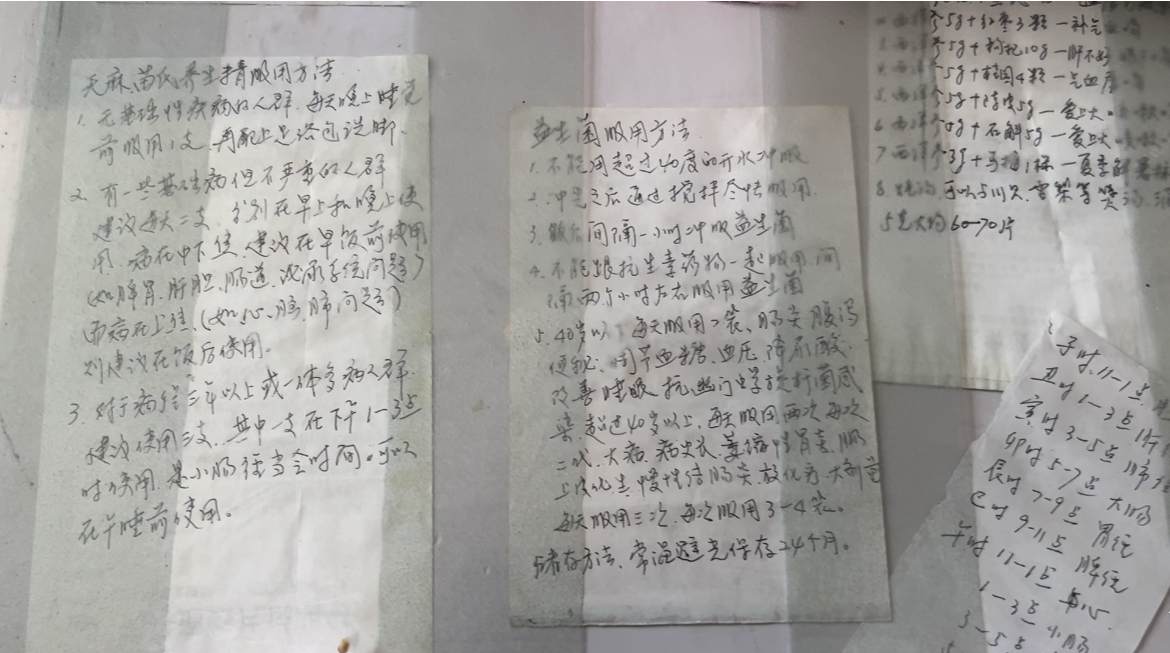 天麻苗氏养生精服用方法
1. 无基础性疾病的人群,每天晚上睡觉
前服用1支,再配上足浴包洗脚.
2. 有一些基础病但不严重的人群
建议每天二支,分别在早上和晚上使
用,病在中下焦,建议在早饭前使用
(如脾胃.肝胆.肠道.泌尿系统问题)
而病在上焦,(如心.脑.肺问题)
则建议在饭后使用.
3. 对于病程三年以上或一体多病人群.
建议使用三支,其中一支在下午1-3点
时使用,是小肠经当令时间。可以
在午睡前使用。
益生菌服用方法
1. 不能用超过40度的开水冲服
2. 冲完之后通过搅拌尽快服用.
3. 饭后间隔一小时冲服益生菌
4. 不能跟抗生素药物一起服用,间
隔两个小时左右服用益生菌
5. 40岁以 每天服用2袋、肠炎腹泻
便秘.调节血糖.血压.降尿酸.
改善睡眠 抗幽门螺旋杆菌感
染.超过40岁以上,每天服用两次每次
二代.大病.病史长.萎缩性胃炎.肠
上皮化生 慢性结肠炎 放化疗 大剂量
每天服用三次.每次服用3-4袋。
储存方法.常温避光保存24个月。
参5g+红枣3颗一补气
西洋参5g+枸杞10g一肝不好
西洋参5g+桂圆4颗一气血虚
5 西洋参5g+陈皮5g一
6 西洋参5g+石斛5g一
7 西洋参3g+ 1 一夏季解暑
8. 可以与川贝.雪梨等煲汤.
5克大约60-70片
子时.11-1点.
丑时 1-3点 肝
寅时 3-5点 肺
卯时 5-7点 大肠
辰时 7-9点 胃经
巳时 9-11点 脾经
午时 11-1点 心
1-3点 小肠
3-5点